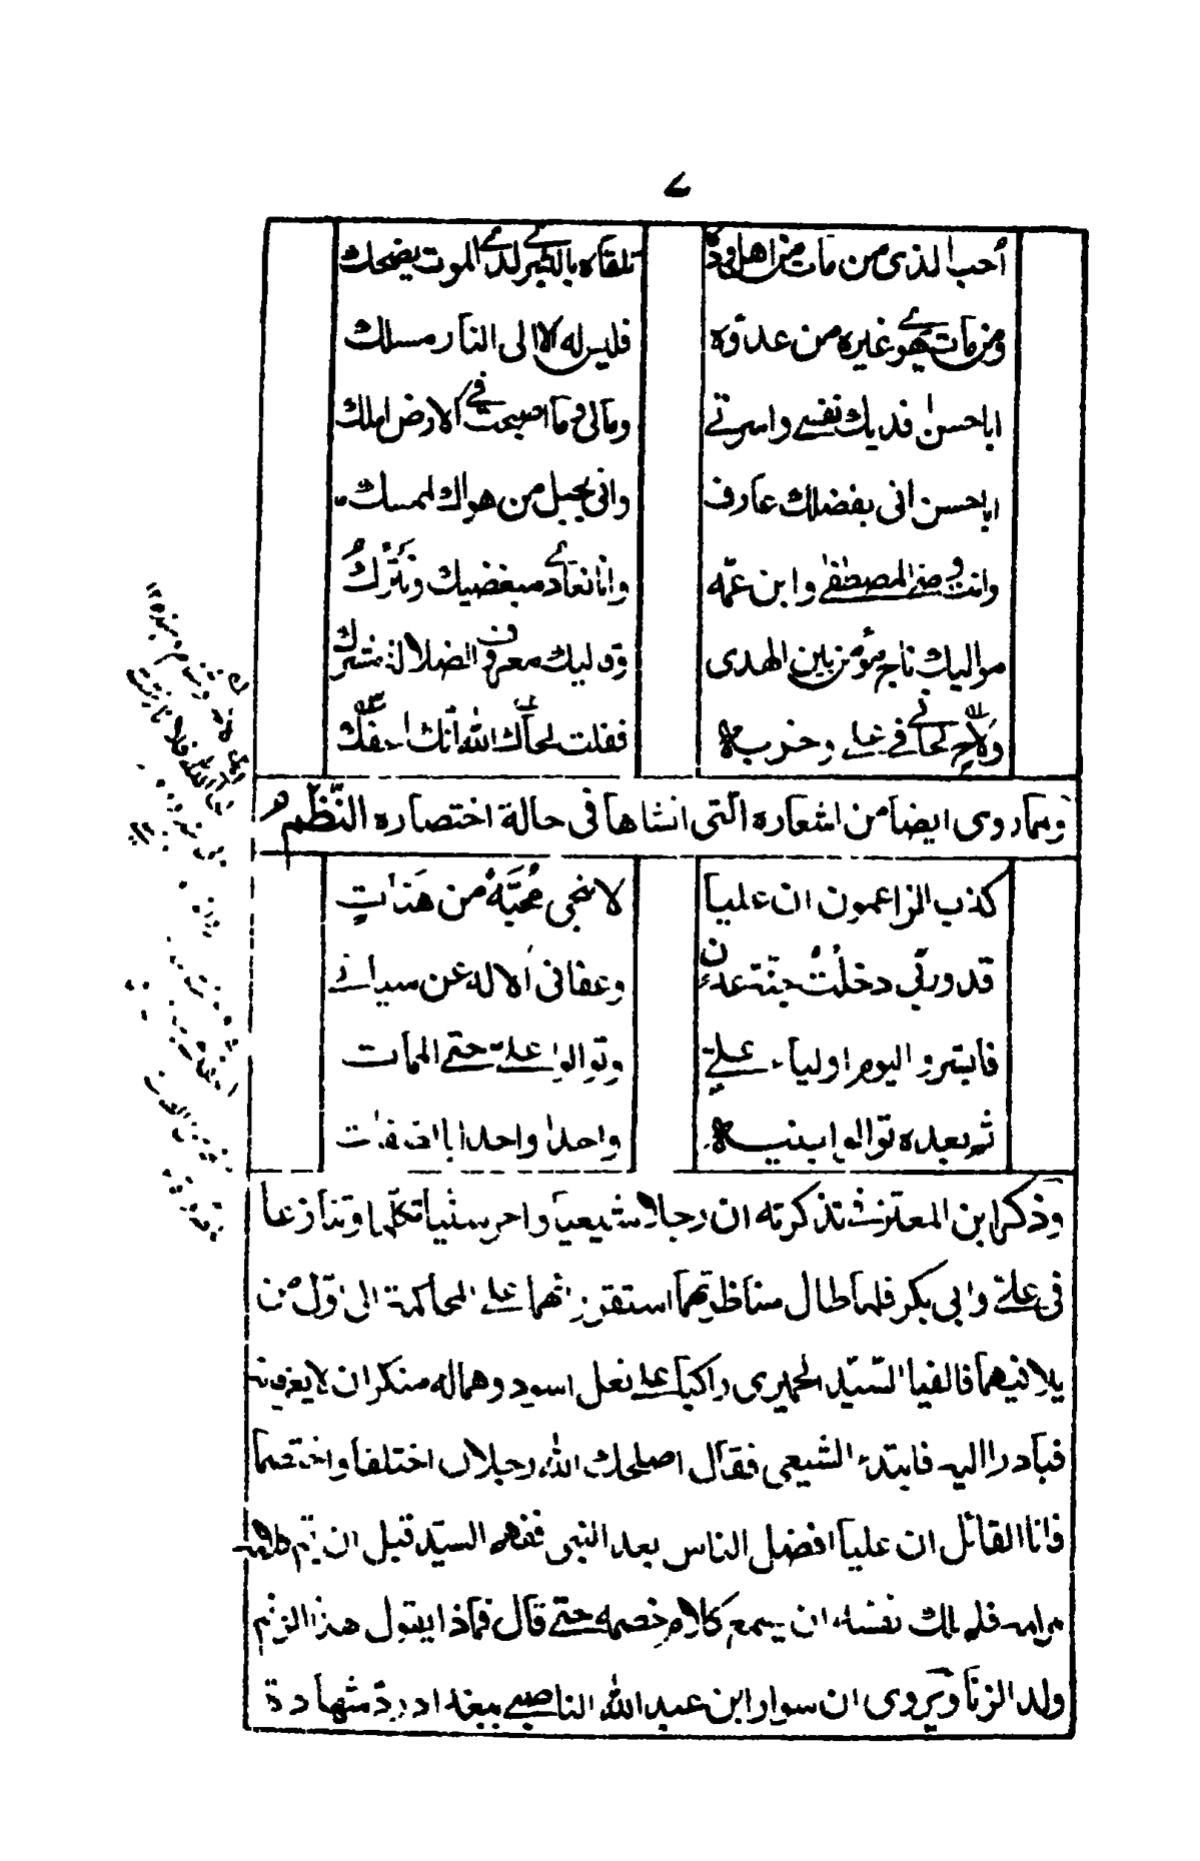 ٧
أحب الذی من مات من اهل وده تلقاه بالبشر لدی الموت یضحك
ومن مات یهوی غیره من عدوه فلیس له الا الی النار مسلك
اباحسن فدیك نفسی واسرتی ومالی وما اصبحت فی الارض املك
اباحسن انی بفضلك عارف وانی بحبل من هواك لممسك
وانت وصی المصطفی وابن عمه وانا نعادی مبغضیك ونترك
موالیك ناج مؤمن بین الهدی وقالیك معروف الضلالة مشرك
ولاح لحانی فی علی وحزبه فقلت لحاك الله انك اعفك
ومما روی ایضا من اشعاره التی انشاها فی حالة اختصاره النظم
كذب الزاعمون ان علیا لا ینجی محبه من هنات
قد وربی دخلت جنة عدن وعفانی الاله عن سیاتی
فابشروا الیوم اولیاء علی وتوالوا علی حتی الممات
ثم بعده توالوا بنیه واحدا واحدا بالصفات
وذكر ابن المعتز فی تذكرته ان رجلا شیعیا واخر سنیا تكلما وتنازعا
فی علی وابی بكر فلما طال مناظرتهما استقر رایهما علی المحاكمة الی اول من
یلاقیهما فالفیا السید الحمیری راكبا علی بغل اسود وهما له منكران لا یعرفانه
فبادرا الیه فابتدء الشیعی فقال اصلحك الله رجلان اختلفا واختصما
فانا القائل ان علیا افضل الناس بعد النبی ففهم السید قبل ان یتم كلامه
مرامه فلم یملك نفسه ان یسمع كلام خصمه حتی قال فماذا یقول هذا الزنیم
ولد الزنا ویروی ان سوار ابن عبد الله الناصبی ببغداد رد شهادة